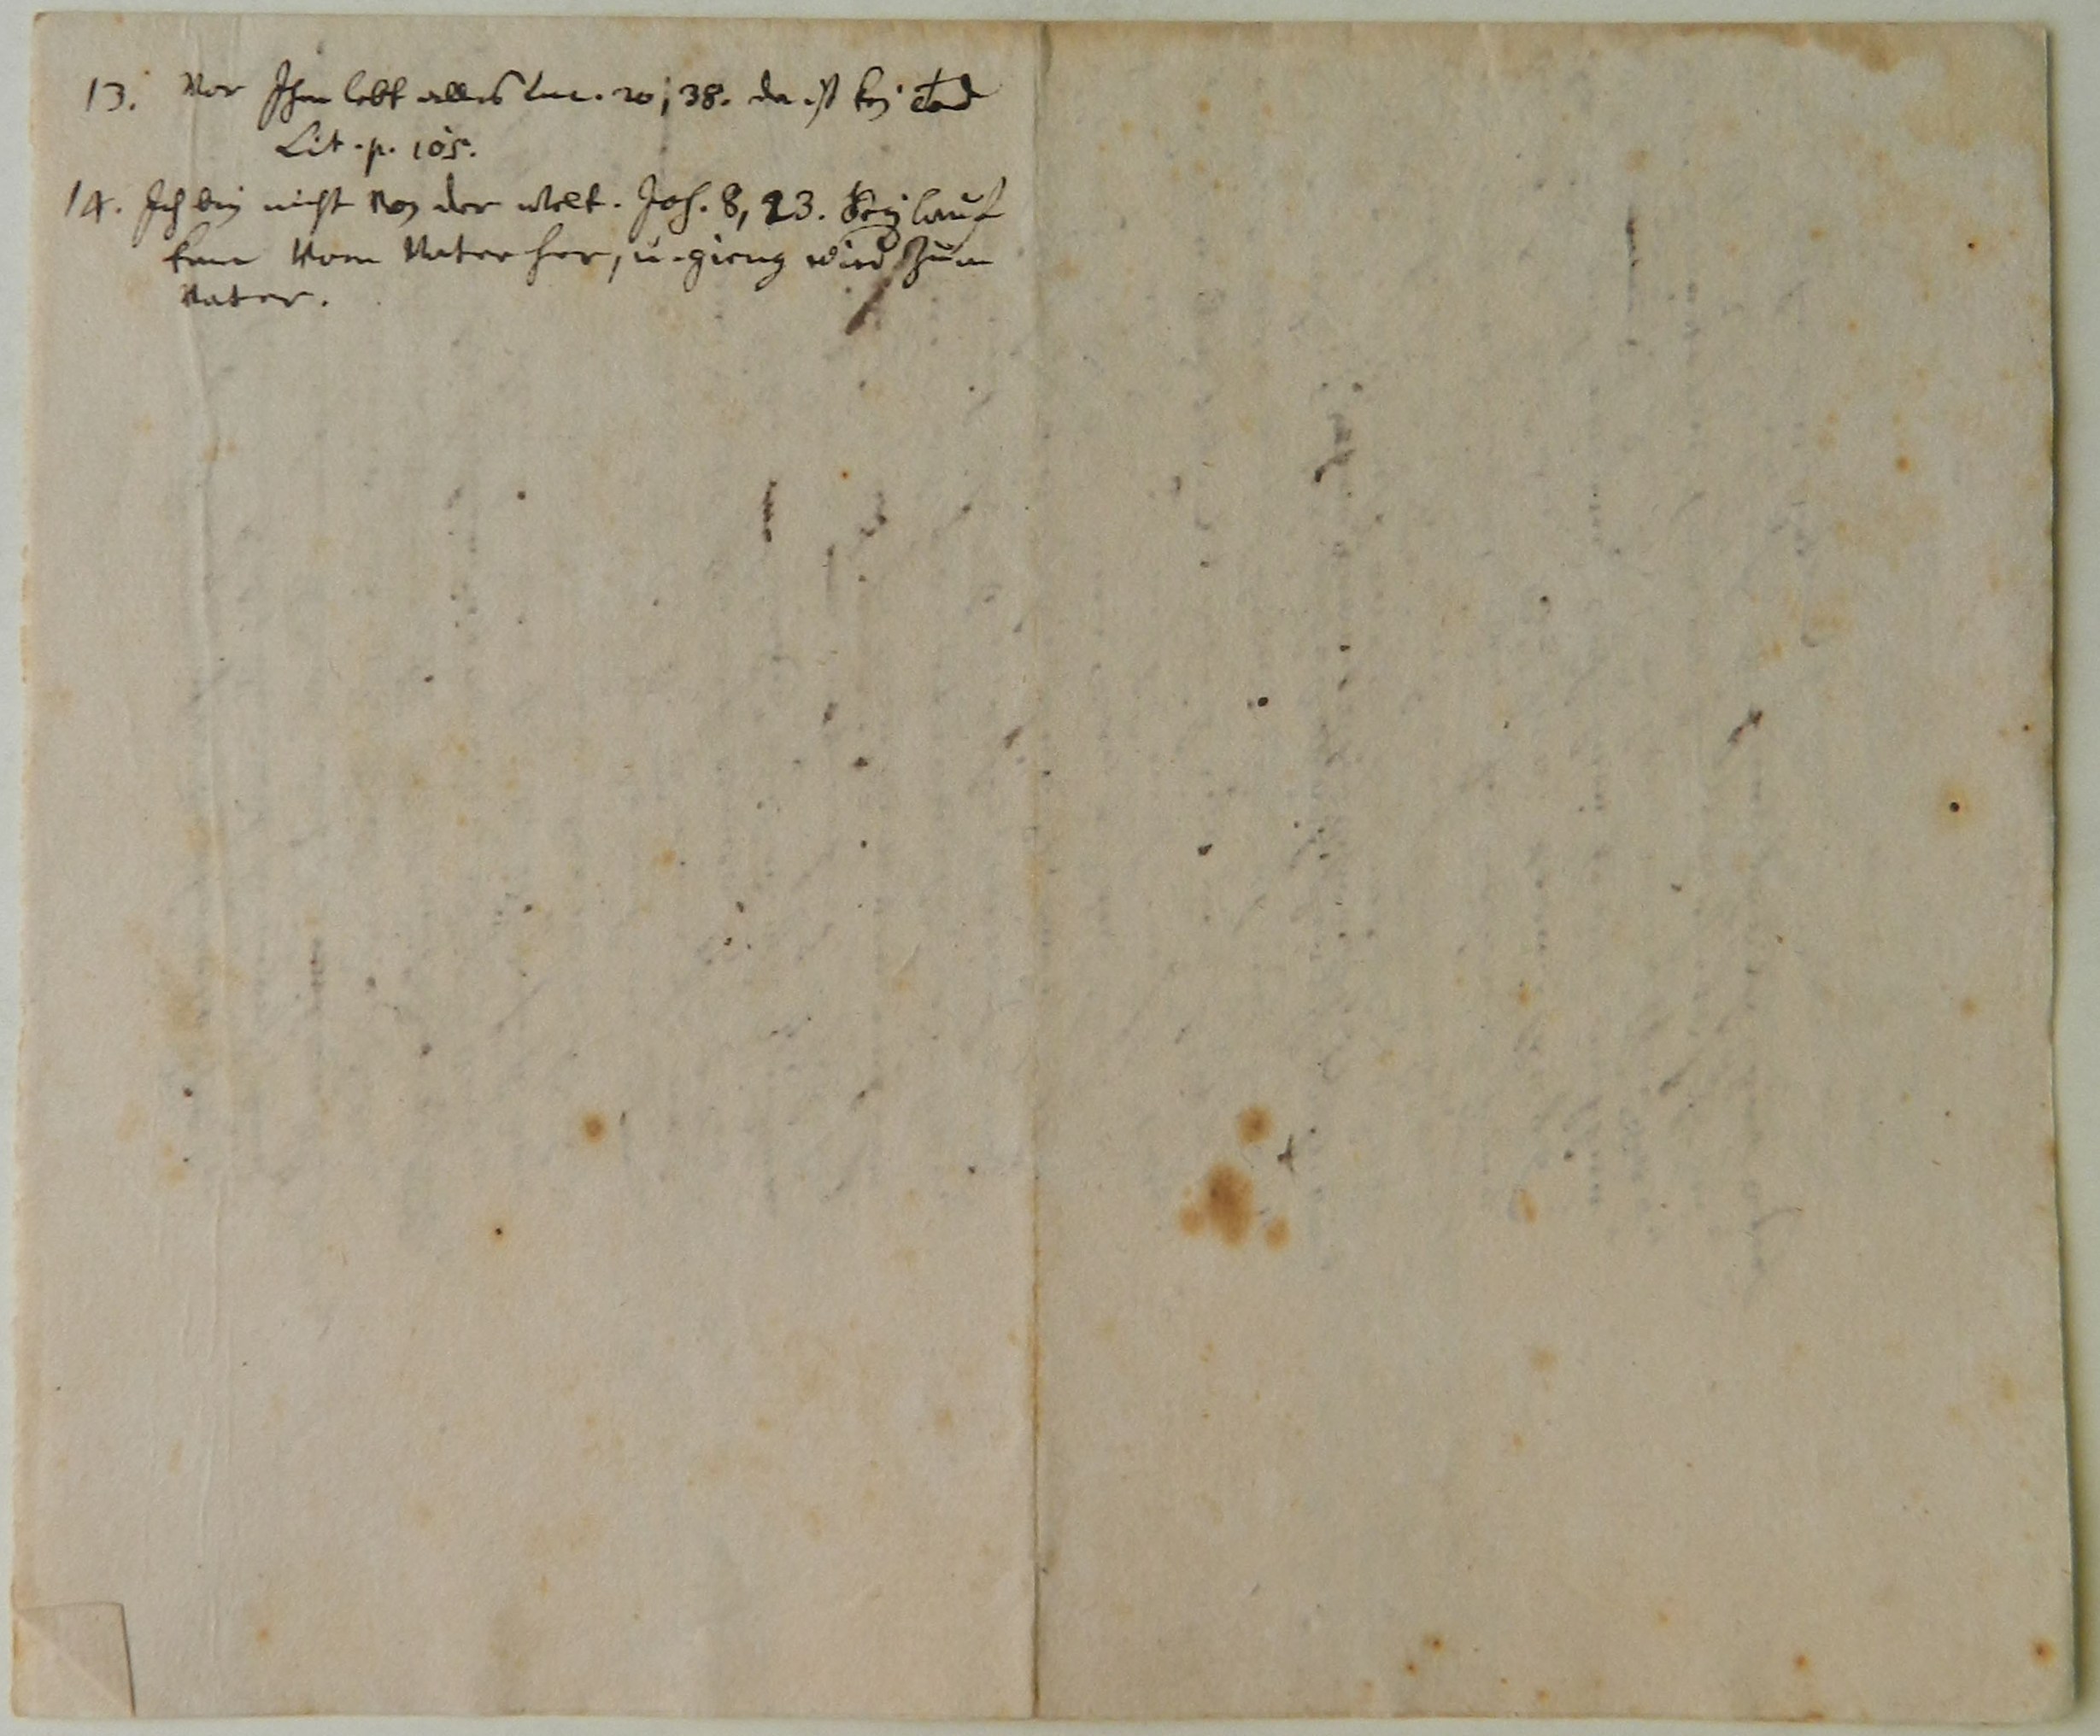 13. Vor Ihm lebt alles Luc. 20, 38. da ist kein Tod
Lit. p. 105.
14. Ich bin nicht von der Welt. Joh. 8, 23. Sein lauf
kam vom Vater her, u. gieng wied zum
Vater.